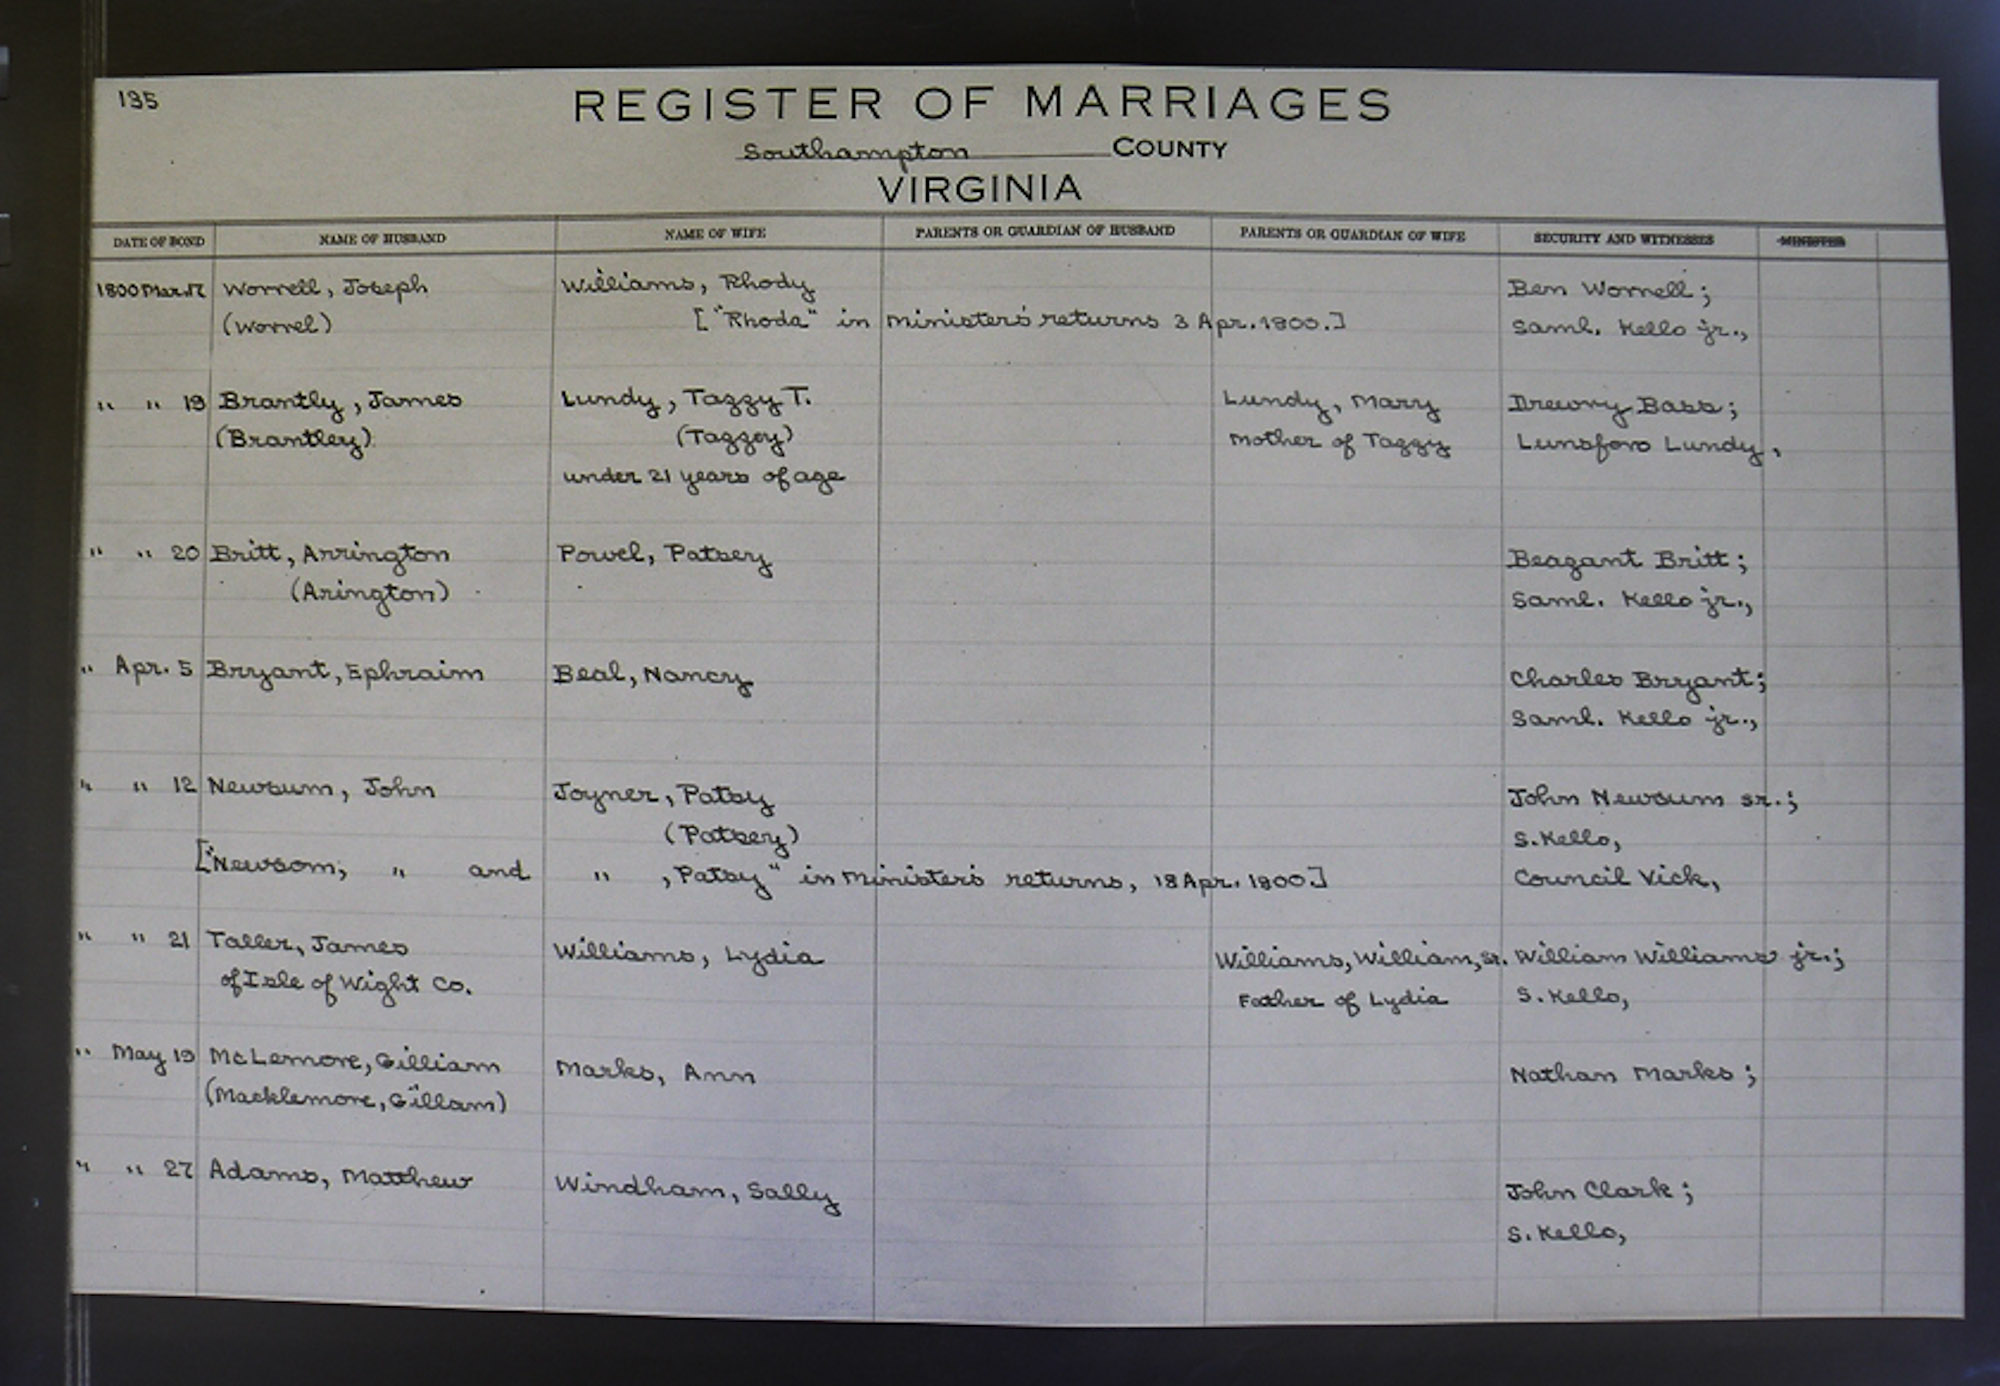 135
REGISTER OF MARRIAGES
Southampton COUNTY
VIRGINIA
DATE OF BOND NAME OF HUSBAND NAME OF WIFE PARENTS OR GUARDIAN OF HUSBAND PARENTS OR GUARDIAN OF WIFE SECURITY AND WITNESSES MINISTER
1800 Mar. 17 Worrell, Joseph Williams, Rhody Ben Worrell;
(Worrel) ["Rhoda" in minister's returns 3 Apr. 1800.] Saml. Kello jr.,
" " 19 Brantly, James Lundy, Tazzy T. Lundy, Mary Drewry Bass;
(Brantley) (Tazzey) Mother of Tazzy Lunsford Lundy,
under 21 years of age
" " 20 Britt, Arrington Powel, Patsey Beazant Britt;
(Arington) Saml. Kello jr.,
" Apr. 5 Bryant, Ephraim Beal, Nancy Charles Bryant;
Saml. Kello jr.,
" " 12 Newsum, John Joyner, Patsy John Newsum sr.;
(Patsey) S. Kello,
["Newsom, " and " , Patsy" in minister's returns, 18 Apr. 1800.] Council Vick,
" " 21 Taller, James Williams, Lydia Williams, William, sr. William Williams jr.;
of Isle of Wight Co. Father of Lydia S. Kello,
" May 19 McLemore, Gilliam Marks, Ann Nathan Marks;
(Macklemore, Gillam)
" " 27 Adams, Matthew Windham, Sally John Clark;
S. Kello,